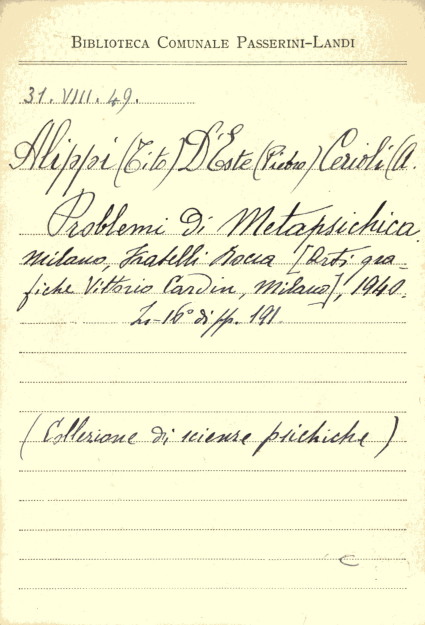 BIBLIOTECA COMUNALE PASSERINI-LANDI
31. VIII. 49.
Alippi (Tito) D'Este (Pietro) Cerioli (A.
Problemi di Metapsichica.
Milano, Fratelli Bocca [Arti gra-
fiche Vittorio Cardin, Milano], 1940.
In-16° di pp. 191.
(Collezione di scienze psichiche)
C